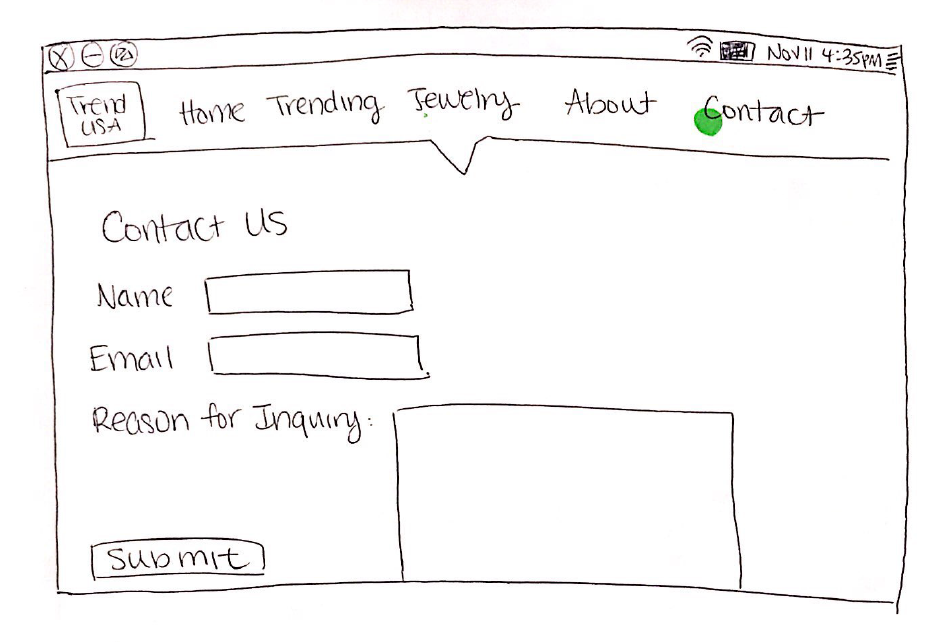 Nov 11 4:35PM
Trend
USA
Home Trending Jewelry About Contact
Contact Us
Name
Email
Reason for Inquiry:
Submit